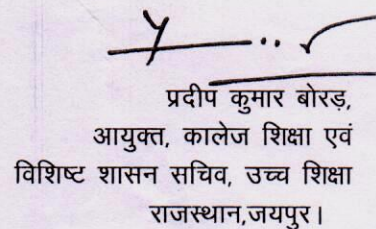 प्रदीप कुमार बोरड़,
आयुक्त, कालेज शिक्षा एवं
विशिष्ट शासन सचिव, उच्च शिक्षा
राजस्थान,जयपुर।